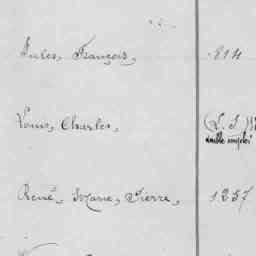 Jules, François, 814
Louis, Charles, (L. S)
double emploi
René, Marie, Pierre, 1237